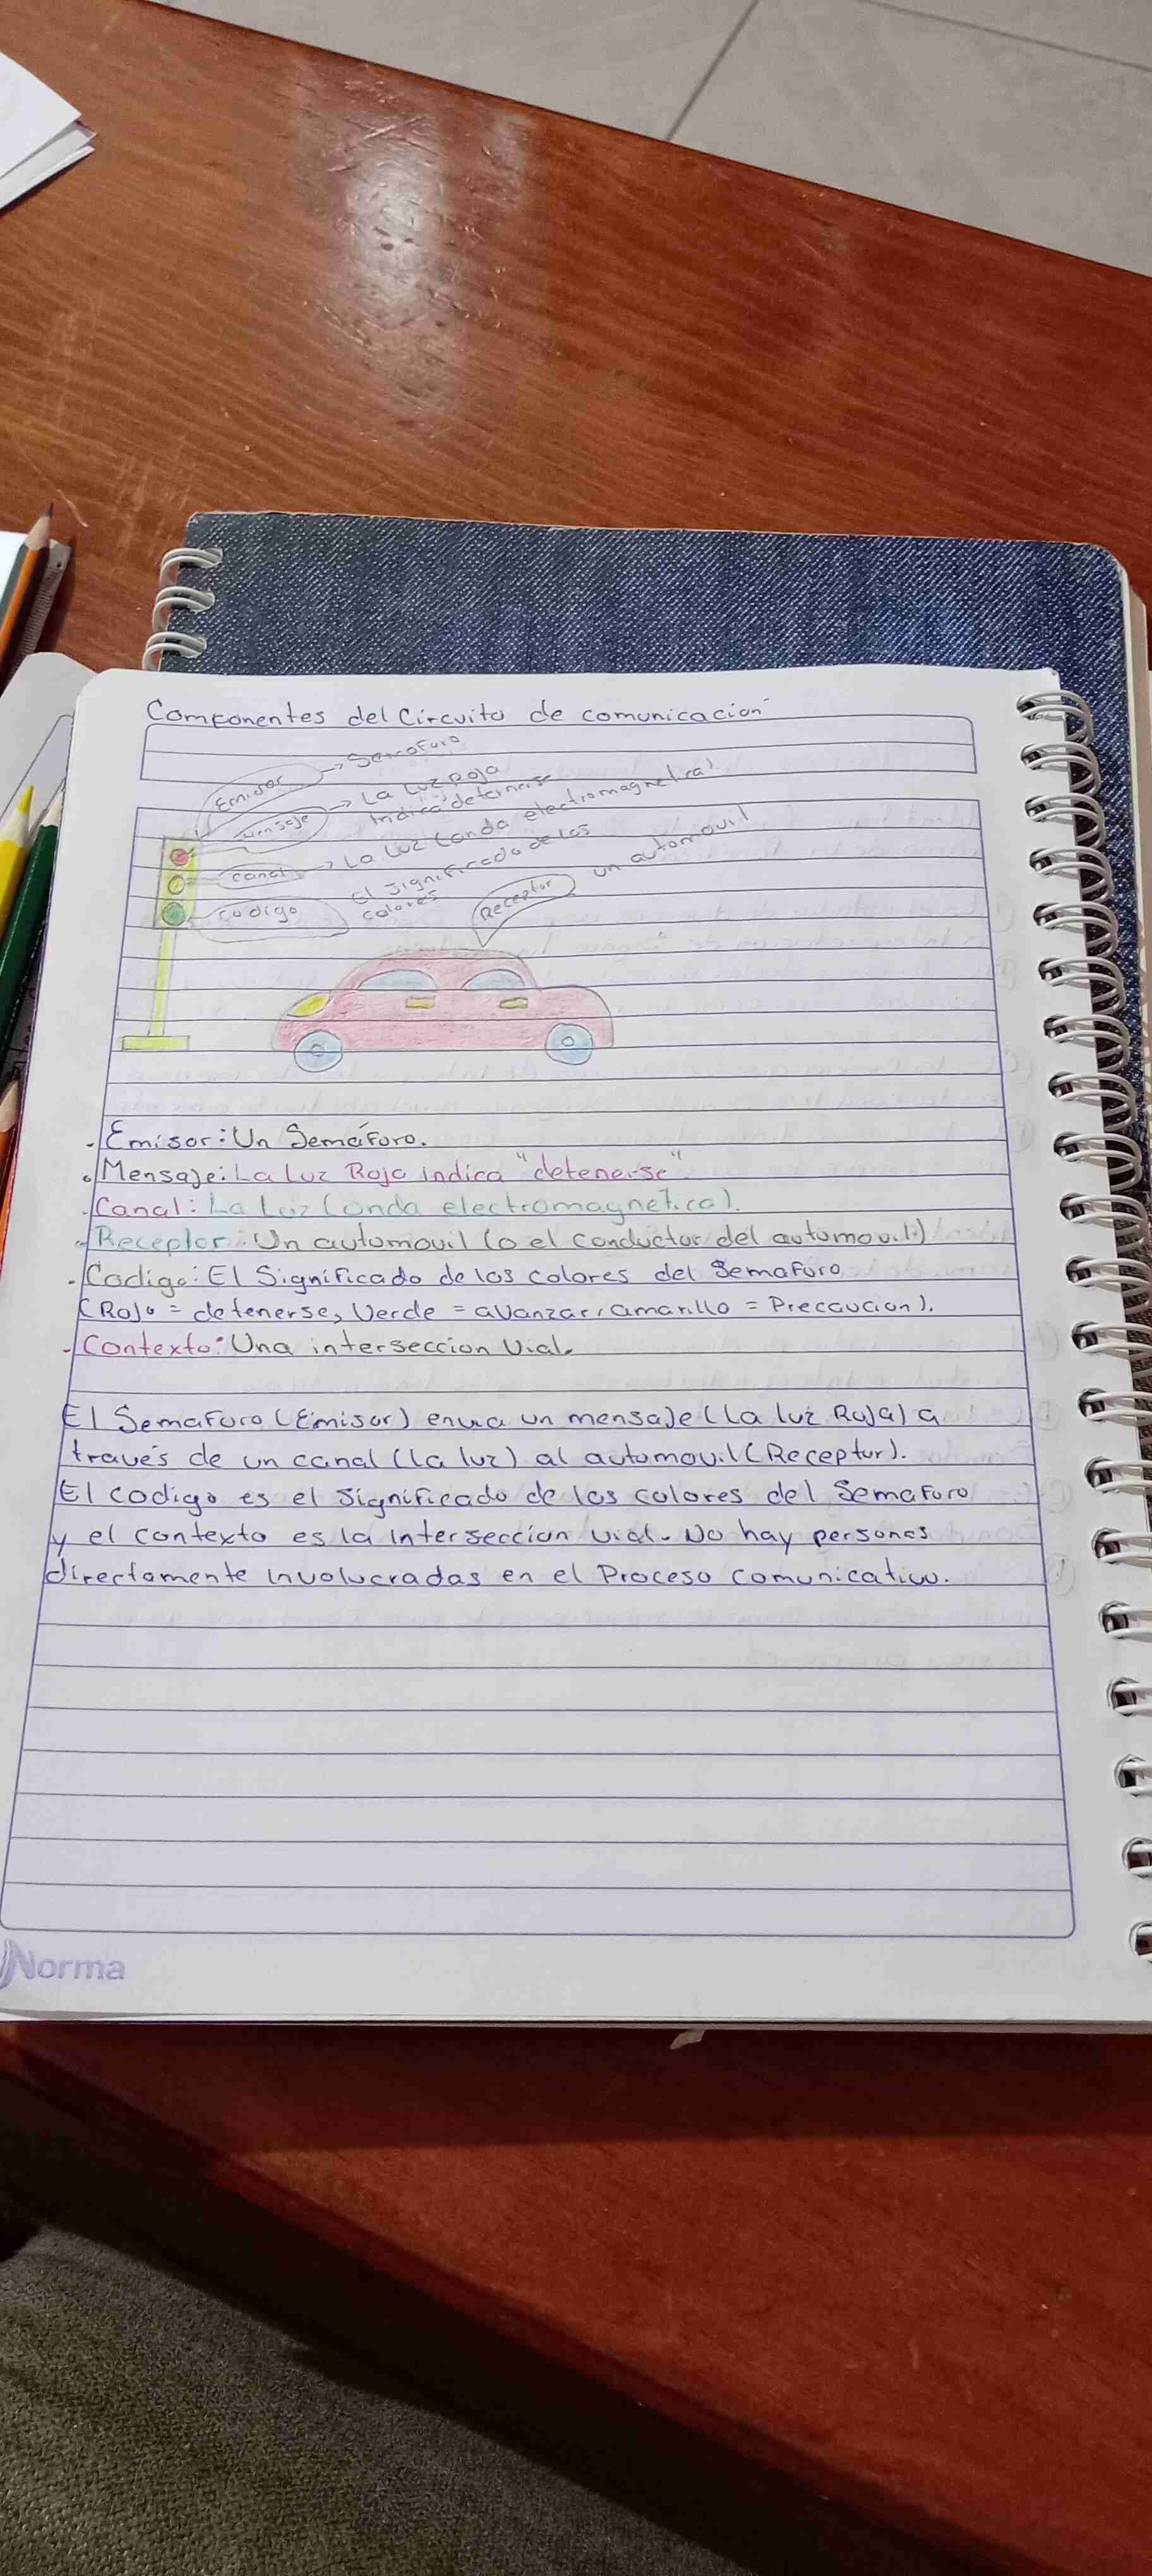 Componentes del Circuito de comunicación
Emisor → Semaforo
Mensaje → La Luz Roja
indica "detenerse"
canal → La Luz (onda electromagnetica)
codigo El significado de los
colores
Receptor un automouil
- Emisor: Un Semáforo.
• Mensaje: La luz Roja indica "detenerse"
- Canal: La Luz (onda electromagnetica).
- Receptor: Un automouil (o el conductor del automouil)
- Codigo: El Significado de los colores del Semaforo
(Rojo = detenerse, Verde = avanzar, amarillo = Precaucion).
- Contexto: Una interseccion Vial.
El Semaforo (Emisor) envia un mensaje (la luz Roja) a
través de un canal (la luz) al automouil (Receptor).
El codigo es el significado de los colores del Semaforo
y el contexto es la interseccion vial. No hay personas
directamente involucradas en el Proceso comunicativo.
Norma